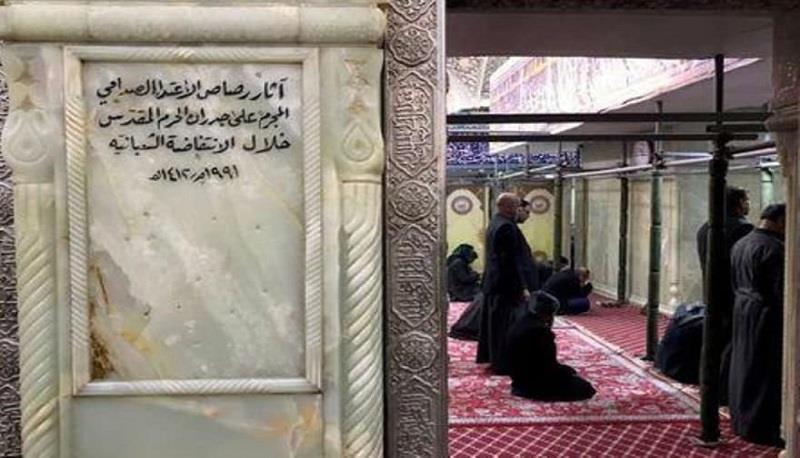 آثار رصاص الاعتداء الصدامي
المجرم على جدران الحرم المقدس
خلال الانتفاضة الشعبانية
١٩٩١م - ١٤١٢هـ